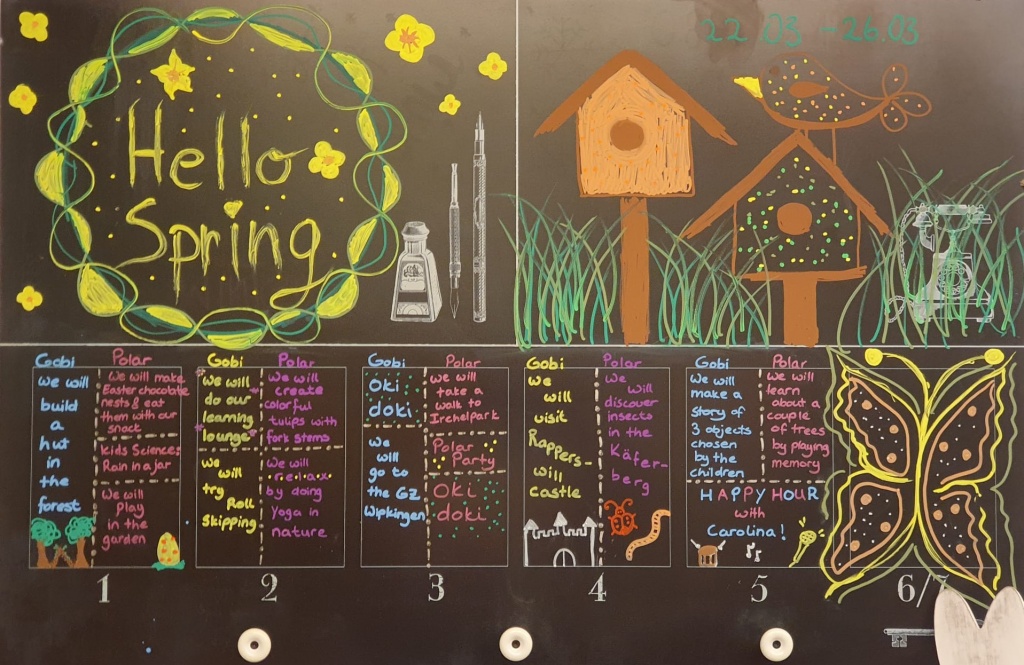 Hello
Spring
22.03 - 26.03
Gobi
we will
build
a
hut
in
the
forest
Polar
We will make
Easter chocolate
nests & eat
them with our
snack
Kids Science:
Rain in a jar
We will
play
in the
garden
1
Gobi
We will
do our
learning
lounge
We
will
try
Roll
Skipping
Polar
We will
create
colorful
tulips with
fork stems
We will
relax
by doing
Yoga in
nature
2
Gobi
Oki
doki
We
will
go to
the GZ
Wipkingen
Polar
we will
take a
walk to
Irchelpark
Polar
Party
Oki
doki
3
Gobi
We
will
visit
Rappers-
will
castle
Polar
We
will
discover
insects
in the
Käfer-
berg
4
Gobi
We will
make a
story of
3 objects
chosen
by the
children
Polar
We will
learn
about a
couple
of trees
by playing
memory
HAPPY HOUR
with
Carolina!
5
6/7